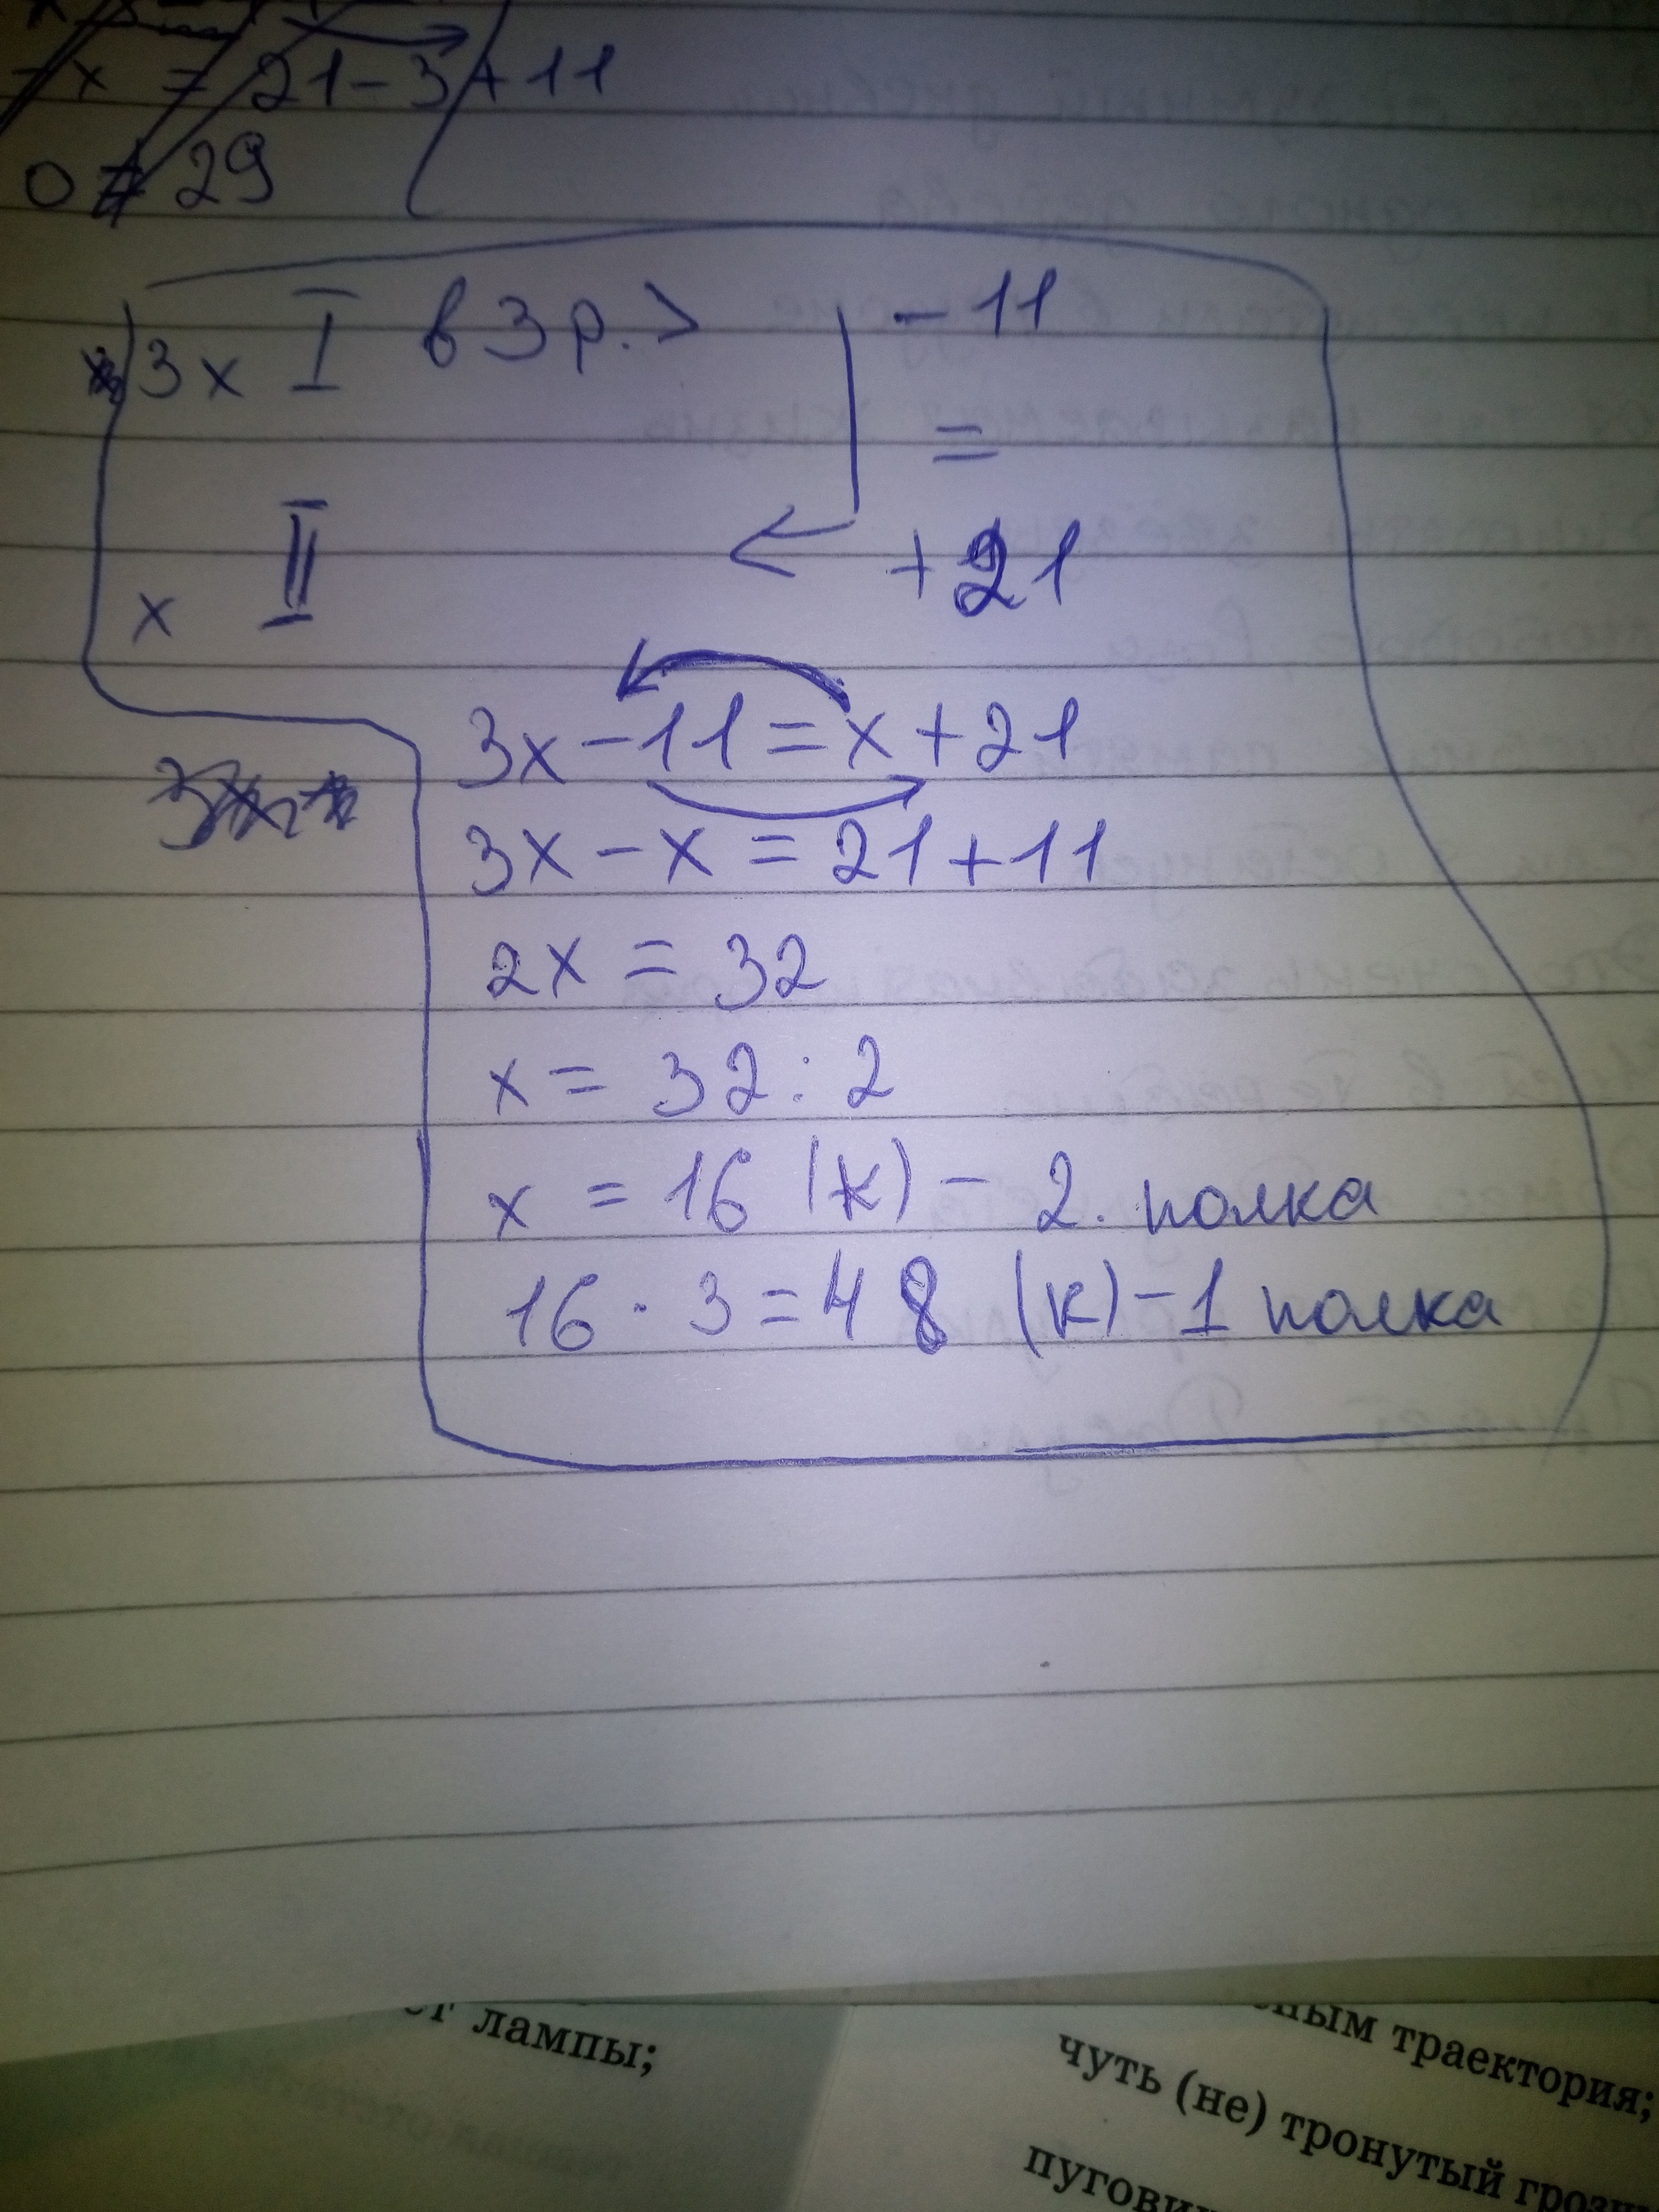 - x = 21 - 3 + 11
0 ≠ 29
3x I в 3 р. > - 11
=
x II + 21
3x - 11 = x + 21
3x - x = 21 + 11
2x = 32
x = 32 : 2
x = 16 (к) - 2. полка
16 · 3 = 48 (к) - 1 полка
лампы;
траектория;
чуть (не) тронутый